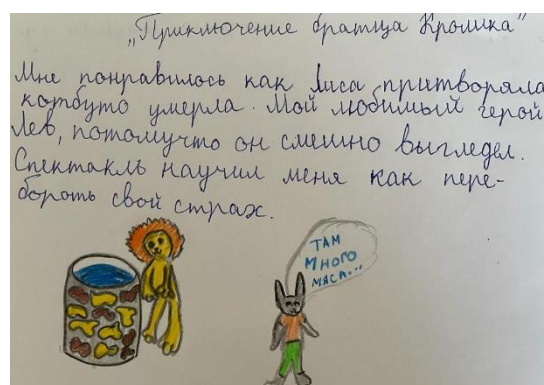 „Приключение братца Кролика"
Мне понравилось как Лиса притворяла
котбуто умерла. Мой любимый герой
Лев, потомучто он смешно выгледел.
Спектакль научил меня как пере-
бороть свой страх.
ТАМ
МНОГО
МЯСА...